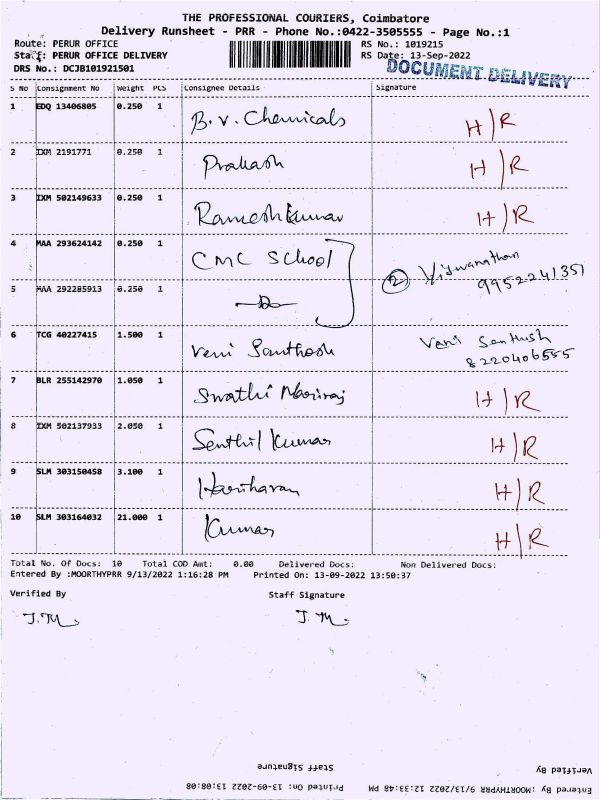 THE PROFESSIONAL COURIERS, Coimbatore
Delivery Runsheet - PRR - Phone No.:0422-3505555 - Page No.:1
Route: PERUR OFFICE RS No.: 1019215
Staff: PERUR OFFICE DELIVERY RS Date: 13-Sep-2022
DRS No.: DCJB101921501 DOCUMENT DELIVERY
S No Consignment No Weight PCS Consignee Details Signature
1 EDQ 13406805 0.250 1 B.V. Chemicals H/R
2 IXM 2191771 0.250 1 Prakash H/R
3 IXM 502149633 0.250 1 Ramesh Kumar H/R
4 MAA 293624142 0.250 1 CMC School (2) Viswanathan
9952241351
5 MAA 292285913 0.250 1
6 TCG 40227415 1.500 1 Veni Santhosh Veni Santhosh
8220406555
7 BLR 255142970 1.050 1 Swathi Mariraj H/R
8 IXM 502137933 2.050 1 Senthil Kumar H/R
9 SLM 303150458 3.100 1 Hariharan H/R
10 SLM 303164032 21.000 1 Kumar H/R
Total No. Of Docs: 10 Total COD Amt: 0.00 Delivered Docs: Non Delivered Docs:
Entered By :MOORTHYPRR 9/13/2022 1:16:28 PM Printed On: 13-09-2022 13:50:37
Verified By Staff Signature
Staff Signature Verified By
Printed On: 13-09-2022 13:08:08 Entered By :MOORTHYPRR 9/13/2022 12:33:48 PM